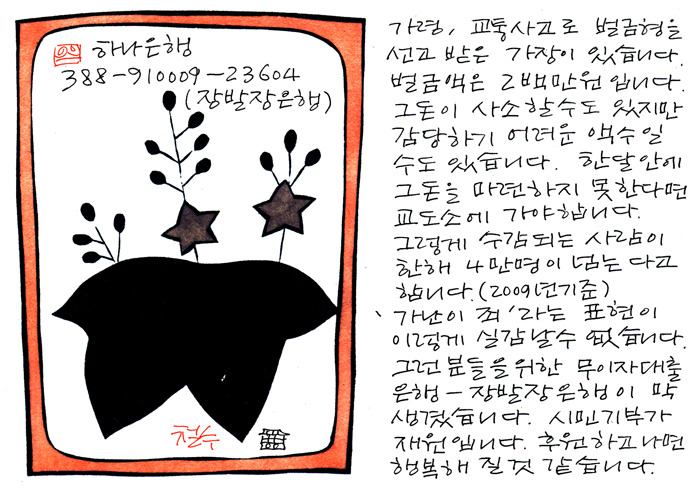 하나은행
388-910009-23604
(장발장은행)
가령, 교통사고로 벌금형을
선고 받은 가장이 있습니다.
벌금액은 2백만원입니다.
그돈이 사소할수도 있지만
감당하기 어려운 액수일
수도 있습니다. 한달안에
그돈을 마련하지 못한다면
교도소에 가야합니다.
그렇게 수감되는 사람이
한해 4만명이 넘는다고
합니다.(2009년기준)
'가난이 죄'라는 표현이
이렇게 실감날수 없습니다.
그런분들을위한 무이자대출
은행-장발장은행이 막
생겼습니다. 시민기부가
재원입니다. 후원하고나면
행복해 질것 같습니다.